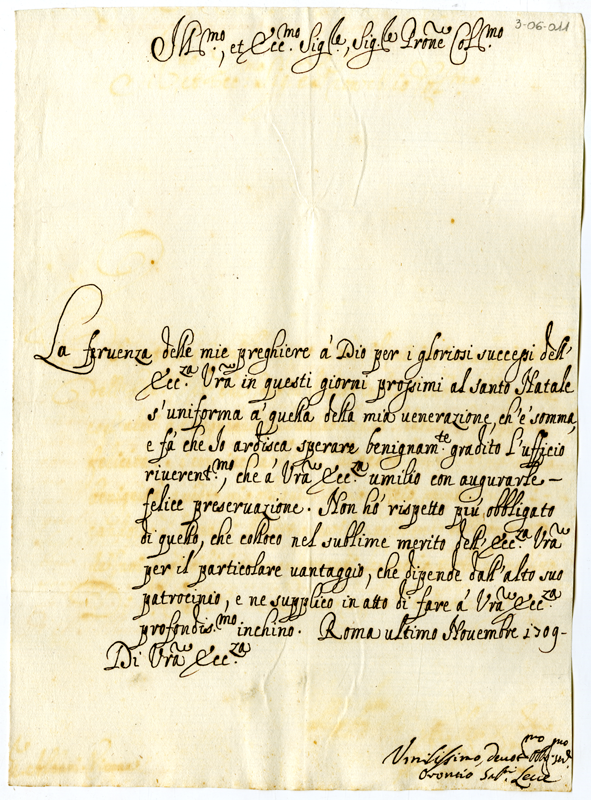 3-06-011
Ill.mo, et Ecc.mo Sig.le, Sig.le Prōne Col.mo
La feruenza delle mie preghiere á Dio per i gloriosi successi dell'
Ecc.za Vrā in questi giorni prossimi al santo Natale
s'uniforma á quella della mia uenerazione, ch'é somma,
e fá che Io ardisca sperare benignam.te gradito l'ufficio
riuerent.mo, che á Vrā Ecc.za umilio con augurarle
felice preseruazione. Non hó rispetto piú obbligato
di quello, che colloco nel sublime merito dell'Ecc.za Vrā
per il particolare uantaggio, che dipende dall'alto suo
patrocinio, e ne supplico in atto di fare á Vrā Ecc.za
profondis.mo inchino. Roma ultimo Novembre 1709-
Di Vrā Ecc.za
Vmilissimo, deuot.mo obblig.mo